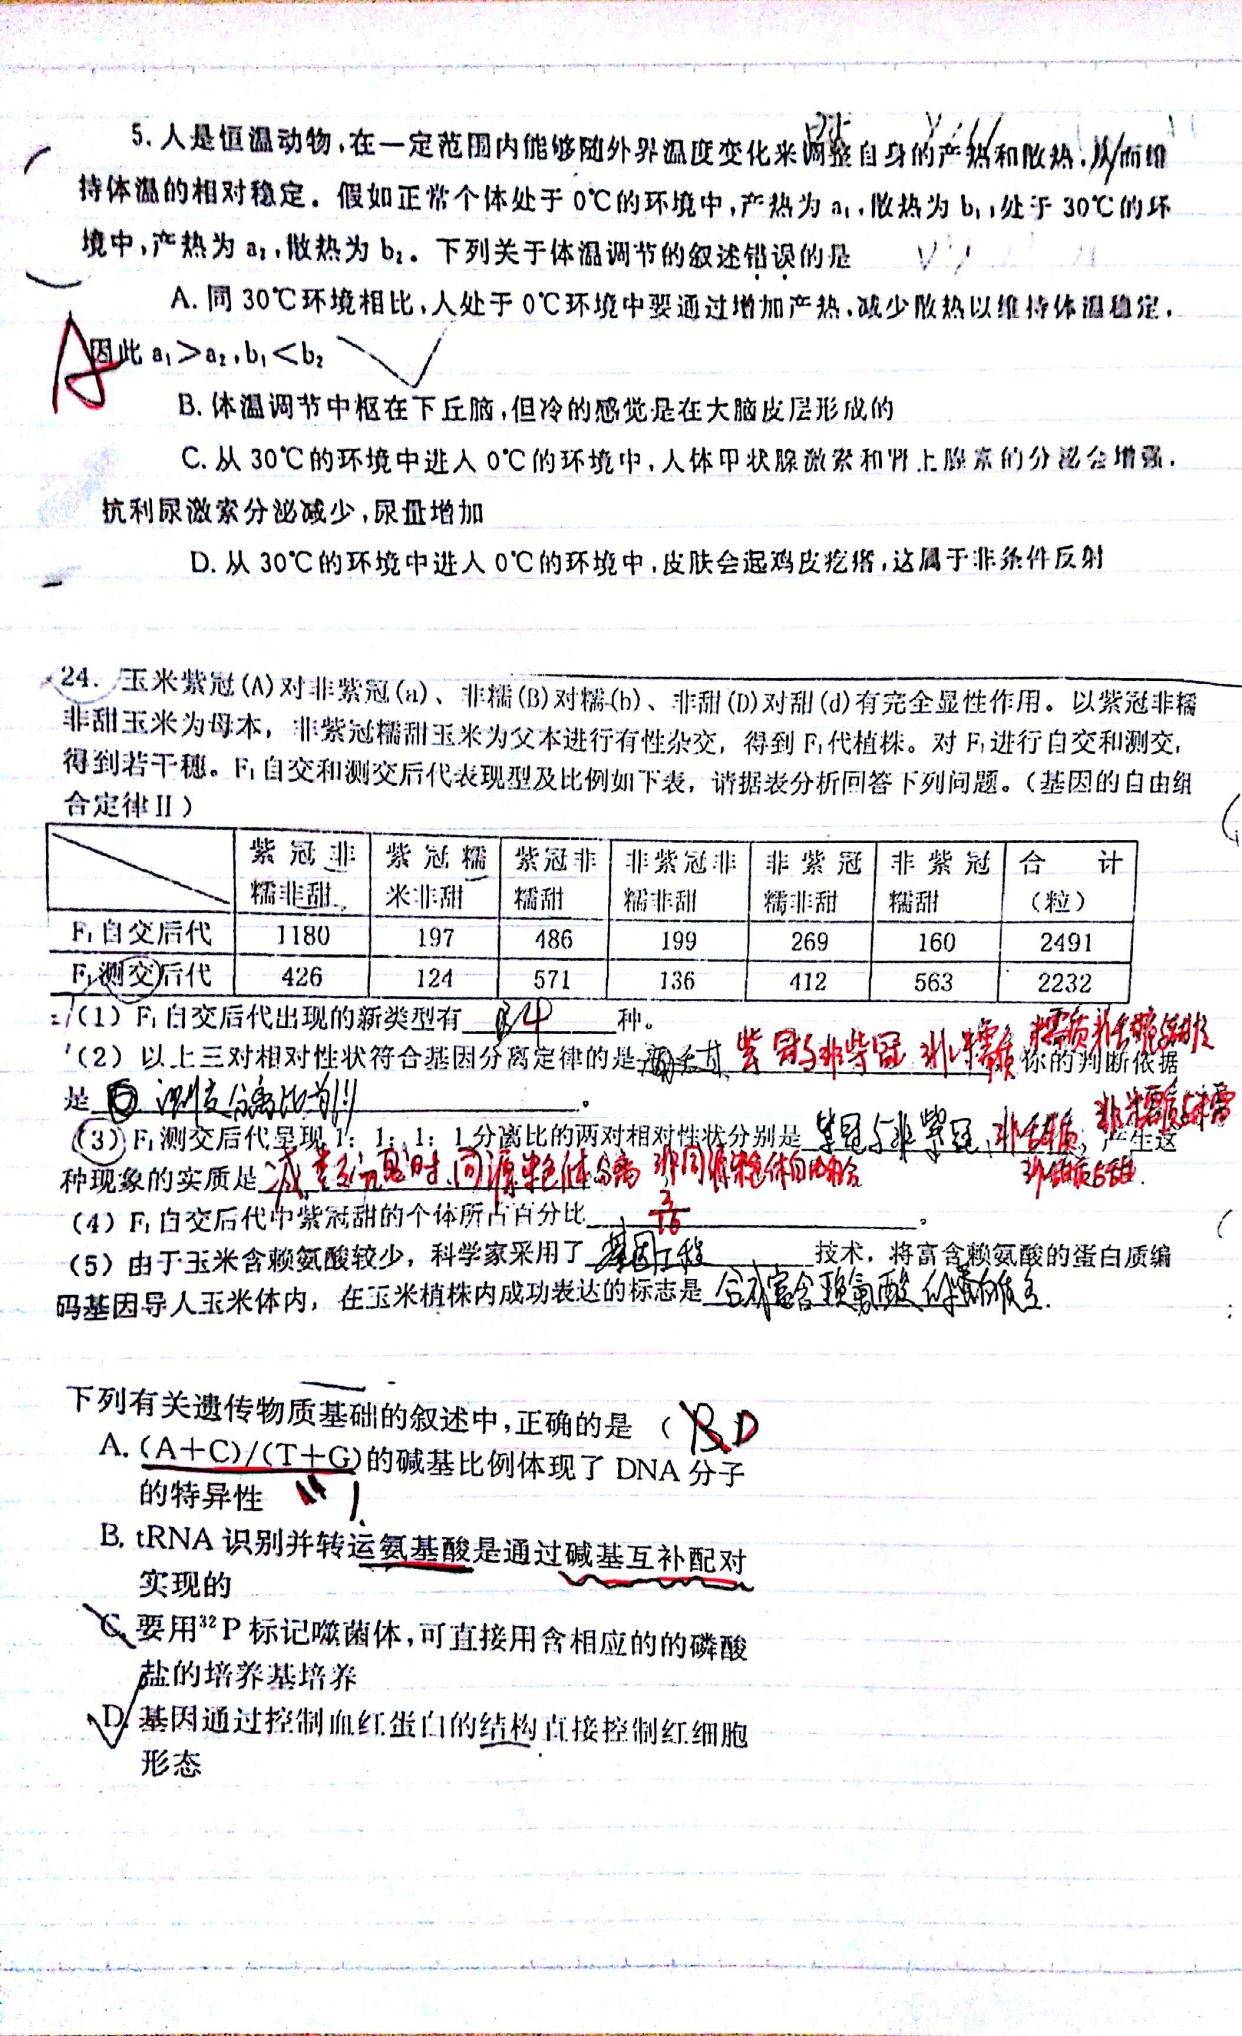 5. 人是恒温动物,在一定范围内能够随外界温度变化来调整自身的产热和散热,从而维
持体温的相对稳定。假如正常个体处于 0℃的环境中,产热为 a₁,散热为 b₁,处于 30℃的环
境中,产热为 a₂,散热为 b₂。下列关于体温调节的叙述错误的是
A. 同 30℃环境相比,人处于 0℃环境中要通过增加产热,减少散热以维持体温稳定,
因此 a₁>a₂,b₁<b₂
A
B. 体温调节中枢在下丘脑,但冷的感觉是在大脑皮层形成的
C. 从 30℃的环境中进入 0℃的环境中,人体甲状腺激素和肾上腺素的分泌会增强,
抗利尿激素分泌减少,尿量增加
D. 从 30℃的环境中进入 0℃的环境中,皮肤会起鸡皮疙瘩,这属于非条件反射
24. 玉米紫冠(A)对非紫冠(a)、非糯(B)对糯(b)、非甜(D)对甜(d)有完全显性作用。以紫冠非糯
非甜玉米为母本，非紫冠糯甜玉米为父本进行有性杂交，得到 F₁代植株。对 F₁进行自交和测交,
得到若干穗。F₁自交和测交后代表现型及比例如下表，请据表分析回答下列问题。（基因的自由组
合定律Ⅱ）
紫冠非糯非甜 紫冠糯米非甜 紫冠非糯甜 非紫冠非糯非甜 非紫冠糯非甜 非紫冠糯甜 合计（粒）
F₁自交后代 1180 197 486 199 269 160 2491
F₁测交后代 426 124 571 136 412 563 2232
（1）F₁自交后代出现的新类型有 4 种。
（2）以上三对相对性状符合基因分离定律的是 紫冠与非紫冠 你的判断依据
是 测交分离比为1:1 。
（3）F₁测交后代呈现 1：1：1：1 分离比的两对相对性状分别是 紫冠与非紫冠、 ；产生这
种现象的实质是 减数分裂时,同源染色体分离 非同源染色体自由组合
（4）F₁自交后代中紫冠甜的个体所占百分比 3/16 。
（5）由于玉米含赖氨酸较少，科学家采用了 基因工程 技术，将富含赖氨酸的蛋白质编
码基因导入玉米体内，在玉米植株内成功表达的标志是 合成富含赖氨酸的蛋白质.
下列有关遗传物质基础的叙述中,正确的是（ B D
A. (A+C)/(T+G)的碱基比例体现了 DNA 分子
的特异性
B. tRNA 识别并转运氨基酸是通过碱基互补配对
实现的
C. 要用³²P 标记噬菌体,可直接用含相应的的磷酸
盐的培养基培养
D. 基因通过控制血红蛋白的结构直接控制红细胞
形态